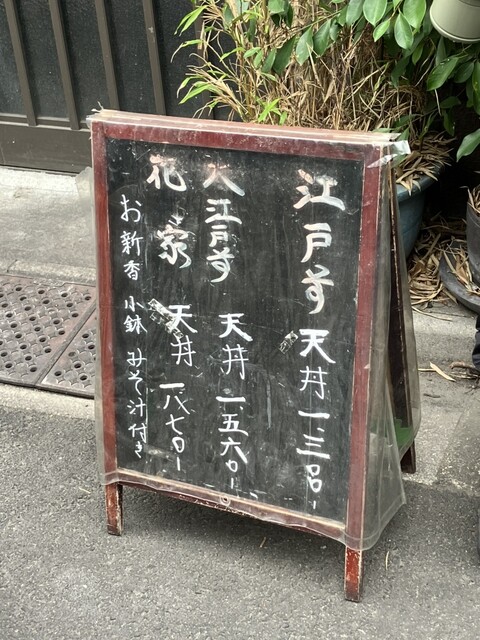 江戸す天丼 一、三〇〇-
大江戸す 天丼 一、五六〇-
花家 天丼 一八七〇-
お新香 小鉢 みそ汁付き